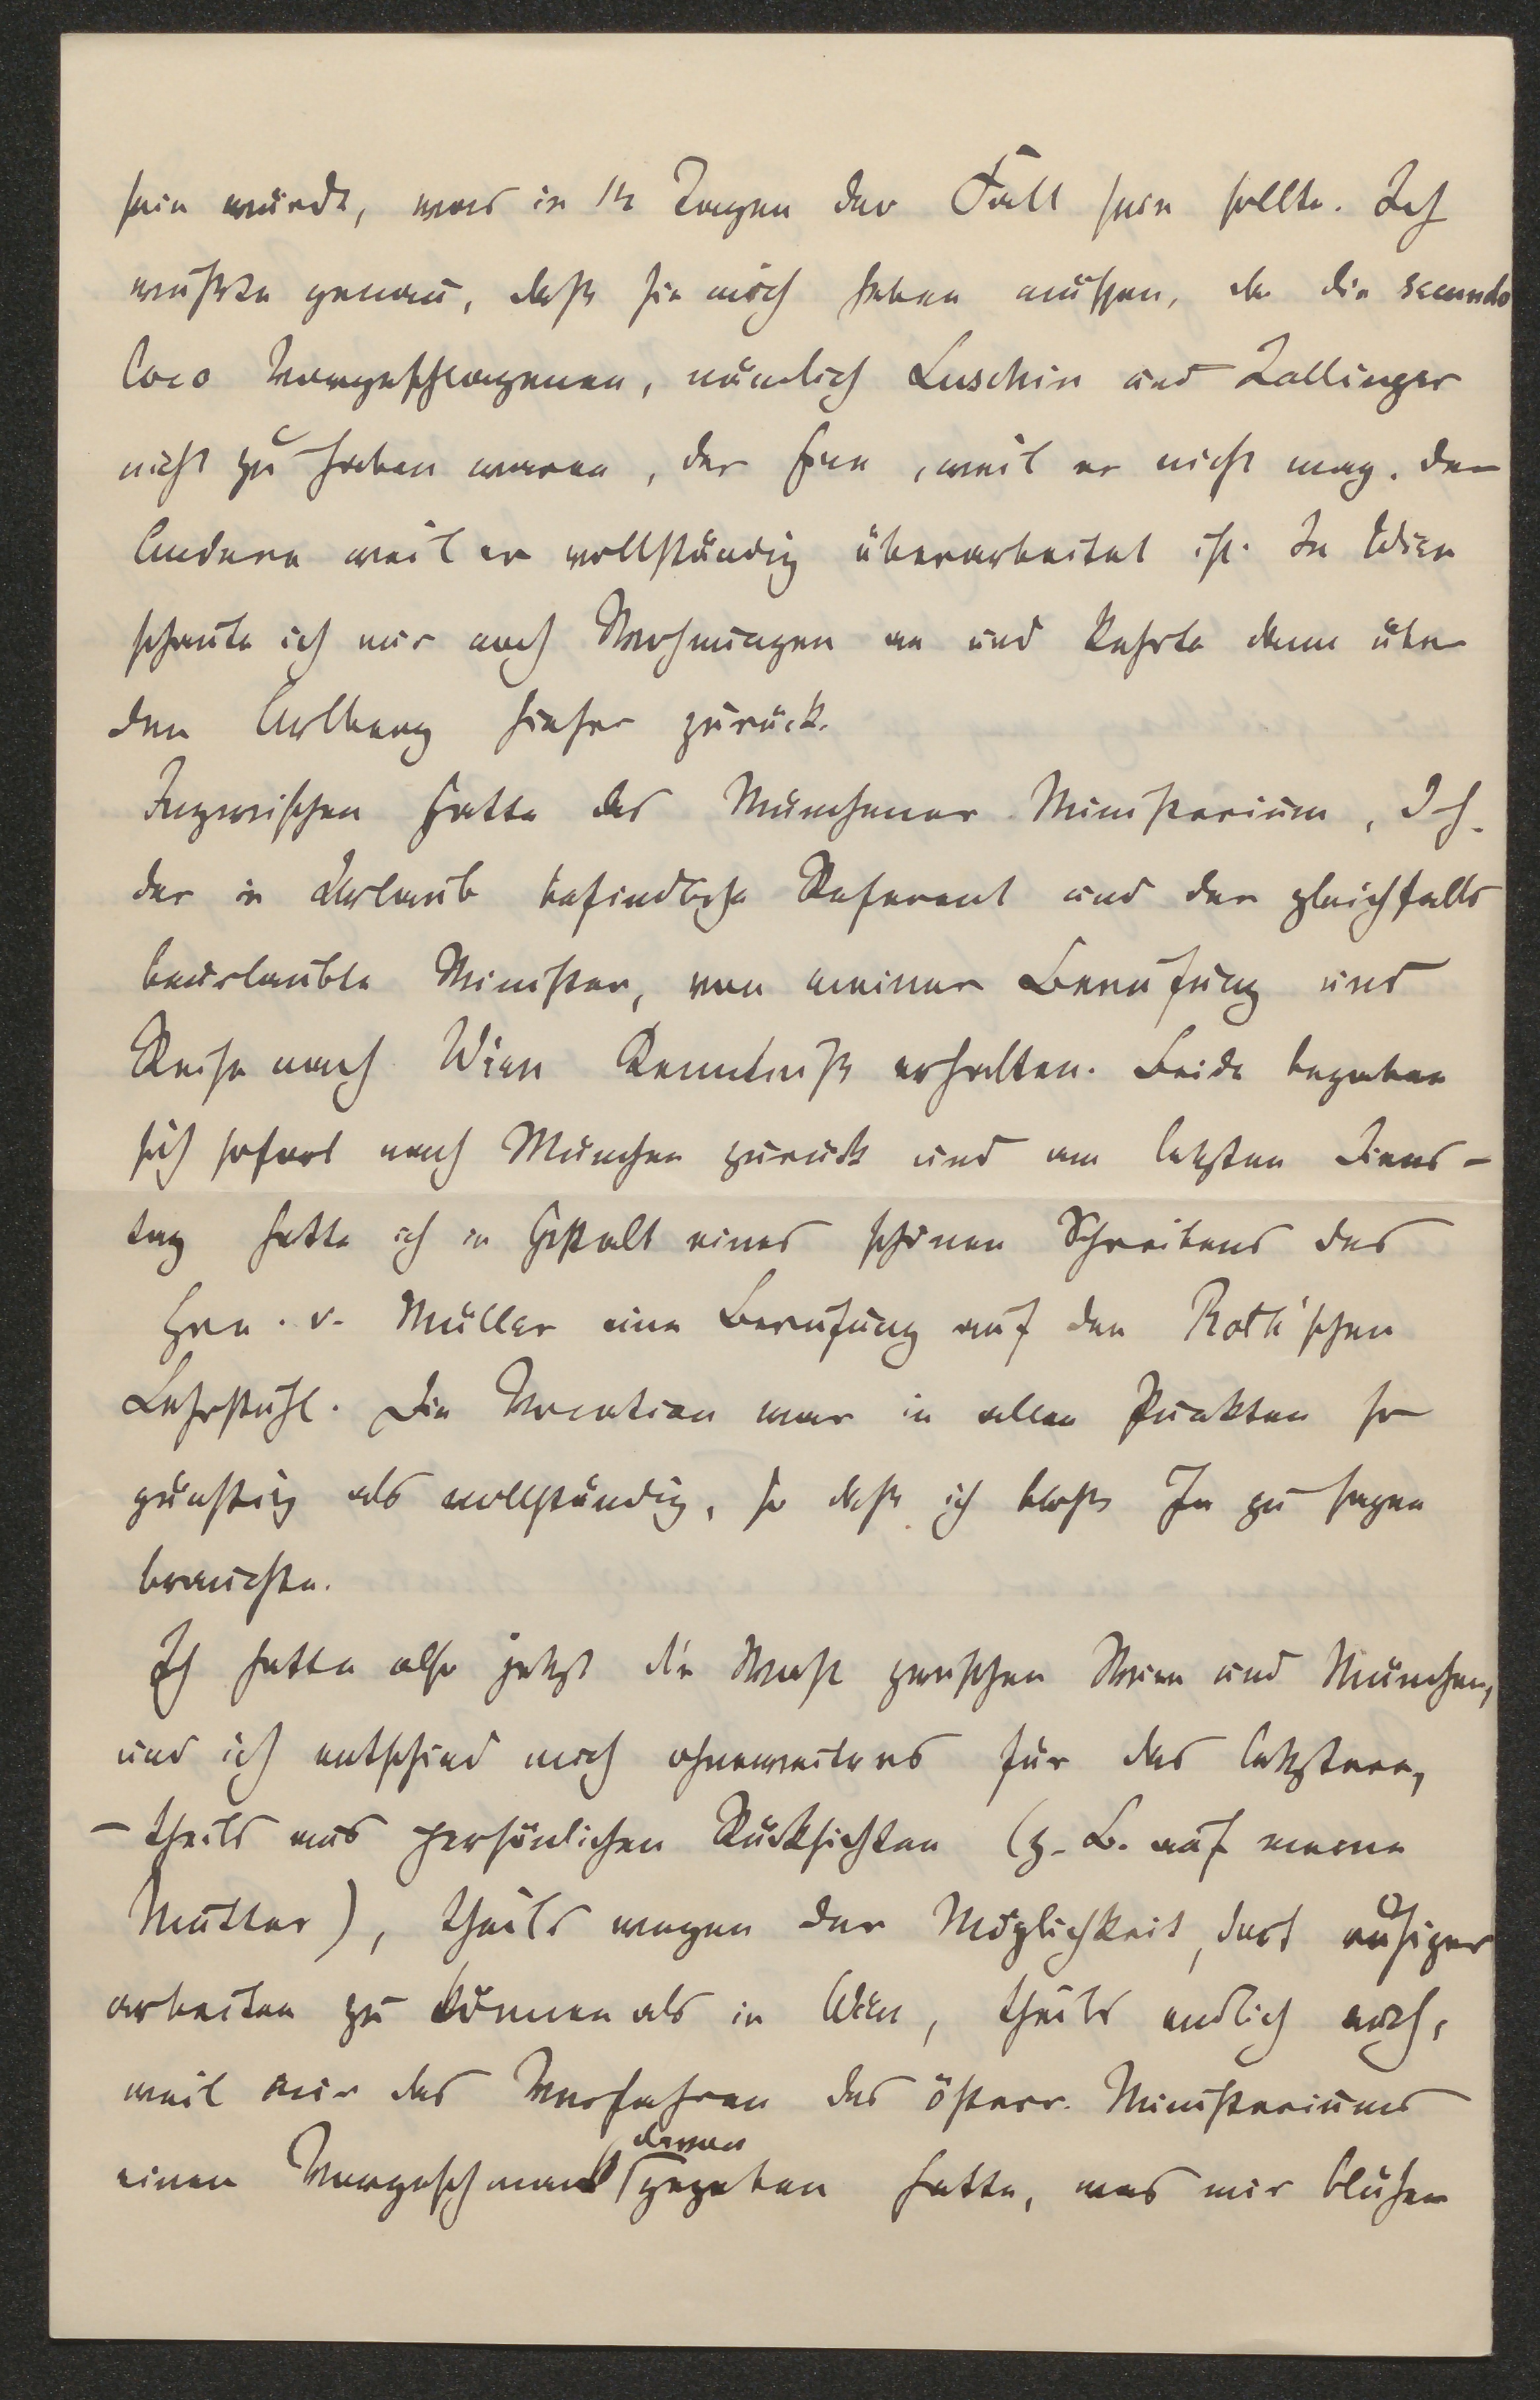 sein würde, was in 14 Tagen der Fall sein sollte. Ich
wußte genau, daß sie mich haben müssen, da die secundo
loco Vorgeschlagenen, nämlich Luschin und Zallinger
nicht zu haben waren, der Eine, weil er nicht mag, der
Andere weil er vollständig überarbeitet ist. In Wien
schaute ich mir noch Wohnungen an und kehrte dann über
den Arlberg hieher zurück.
Inzwischen hatte das Münchener Ministerium, d. h.
der in Urlaub befindliche Referent und der gleichfalls
beurlaubte Minister, von meiner Berufung und
Reise nach Wien Kenntniß erhalten. Beide begaben
sich sofort nach München zurück und am letzten Diens-
tag hatte ich in Gestalt eines schönen Schreibens des
Hrn. v. Müller eine Berufung auf den Roth'schen
Lehrstuhl. Die Vocation war in allen Punkten so
günstig als vollständig, so daß ich bloß Ja zu sagen
brauchte.
Ich hatte also jetzt die Wahl zwischen Wien und München,
und ich entschied mich ohneweiters für das letztere,
– theils aus persönlichen Rücksichten (z. B. auf meine
Mutter), theils wegen der Möglichkeit, dort ruhiger
arbeiten zu können als in Wien, theils endlich auch,
weil mir das Verfahren des österr. Ministeriums
einen Vorgeschmack davon gegeben hatte, was mir blühen